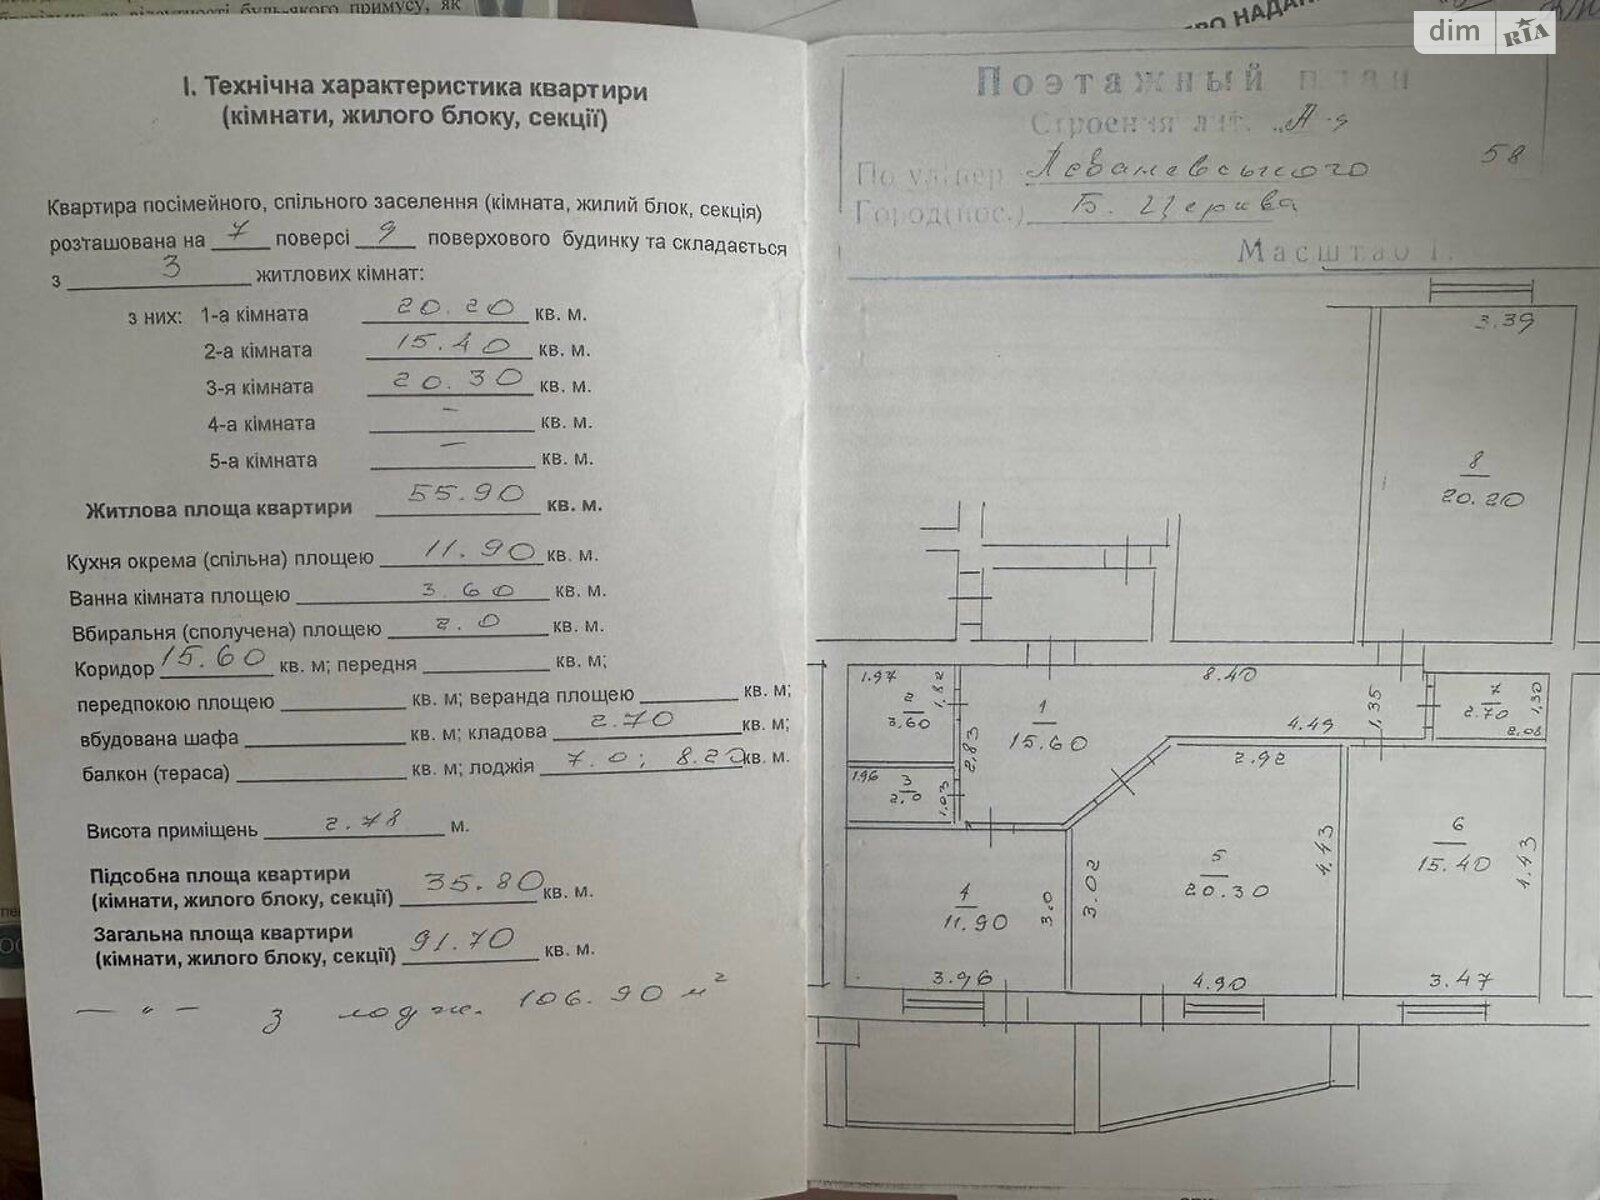 будь-якого примусу, як
dim RIA
І. Технічна характеристика квартири
(кімнати, жилого блоку, секції)
Квартира посімейного, спільного заселення (кімната, жилий блок, секція)
розташована на 7 поверсі 9 поверхового будинку та складається
з 3 житлових кімнат:
з них: 1-а кімната 20.20 кв. м.
2-а кімната 15.40 кв. м.
3-я кімната 20.30 кв. м.
4-а кімната – кв. м.
5-а кімната – кв. м.
Житлова площа квартири 55.90 кв. м.
Кухня окрема (спільна) площею 11.90 кв. м.
Ванна кімната площею 3.60 кв. м.
Вбиральня (сполучена) площею 2.0 кв. м.
Коридор 15.60 кв. м; передня кв. м;
передпокою площею кв. м; веранда площею кв. м;
вбудована шафа кв. м; кладова 2.70 кв. м;
балкон (тераса) кв. м; лоджія 7.0; 8.20 кв. м.
Висота приміщень 2.78 м.
Підсобна площа квартири
(кімнати, жилого блоку, секції) 35.80 кв. м.
Загальна площа квартири
(кімнати, жилого блоку, секції) 91.70 кв. м.
— " — з лодж. 106.90 м²
Поэтажный план
Строения лит. „А-9
По ул/пер. Лєваневського 58
Город(пос.) Б. Церква
Масштаб 1:
3.39
8
20.20
1.97
2
3.60
1,82
8.40
1
15.60
2,83
4.49
1,35
7
2.70
1,30
2.08
1.96
3
2.0
1.03
2.92
4
11.90
3.0
3.96
3.02
5
20.30
4.43
4.90
6
15.40
4.43
3.47